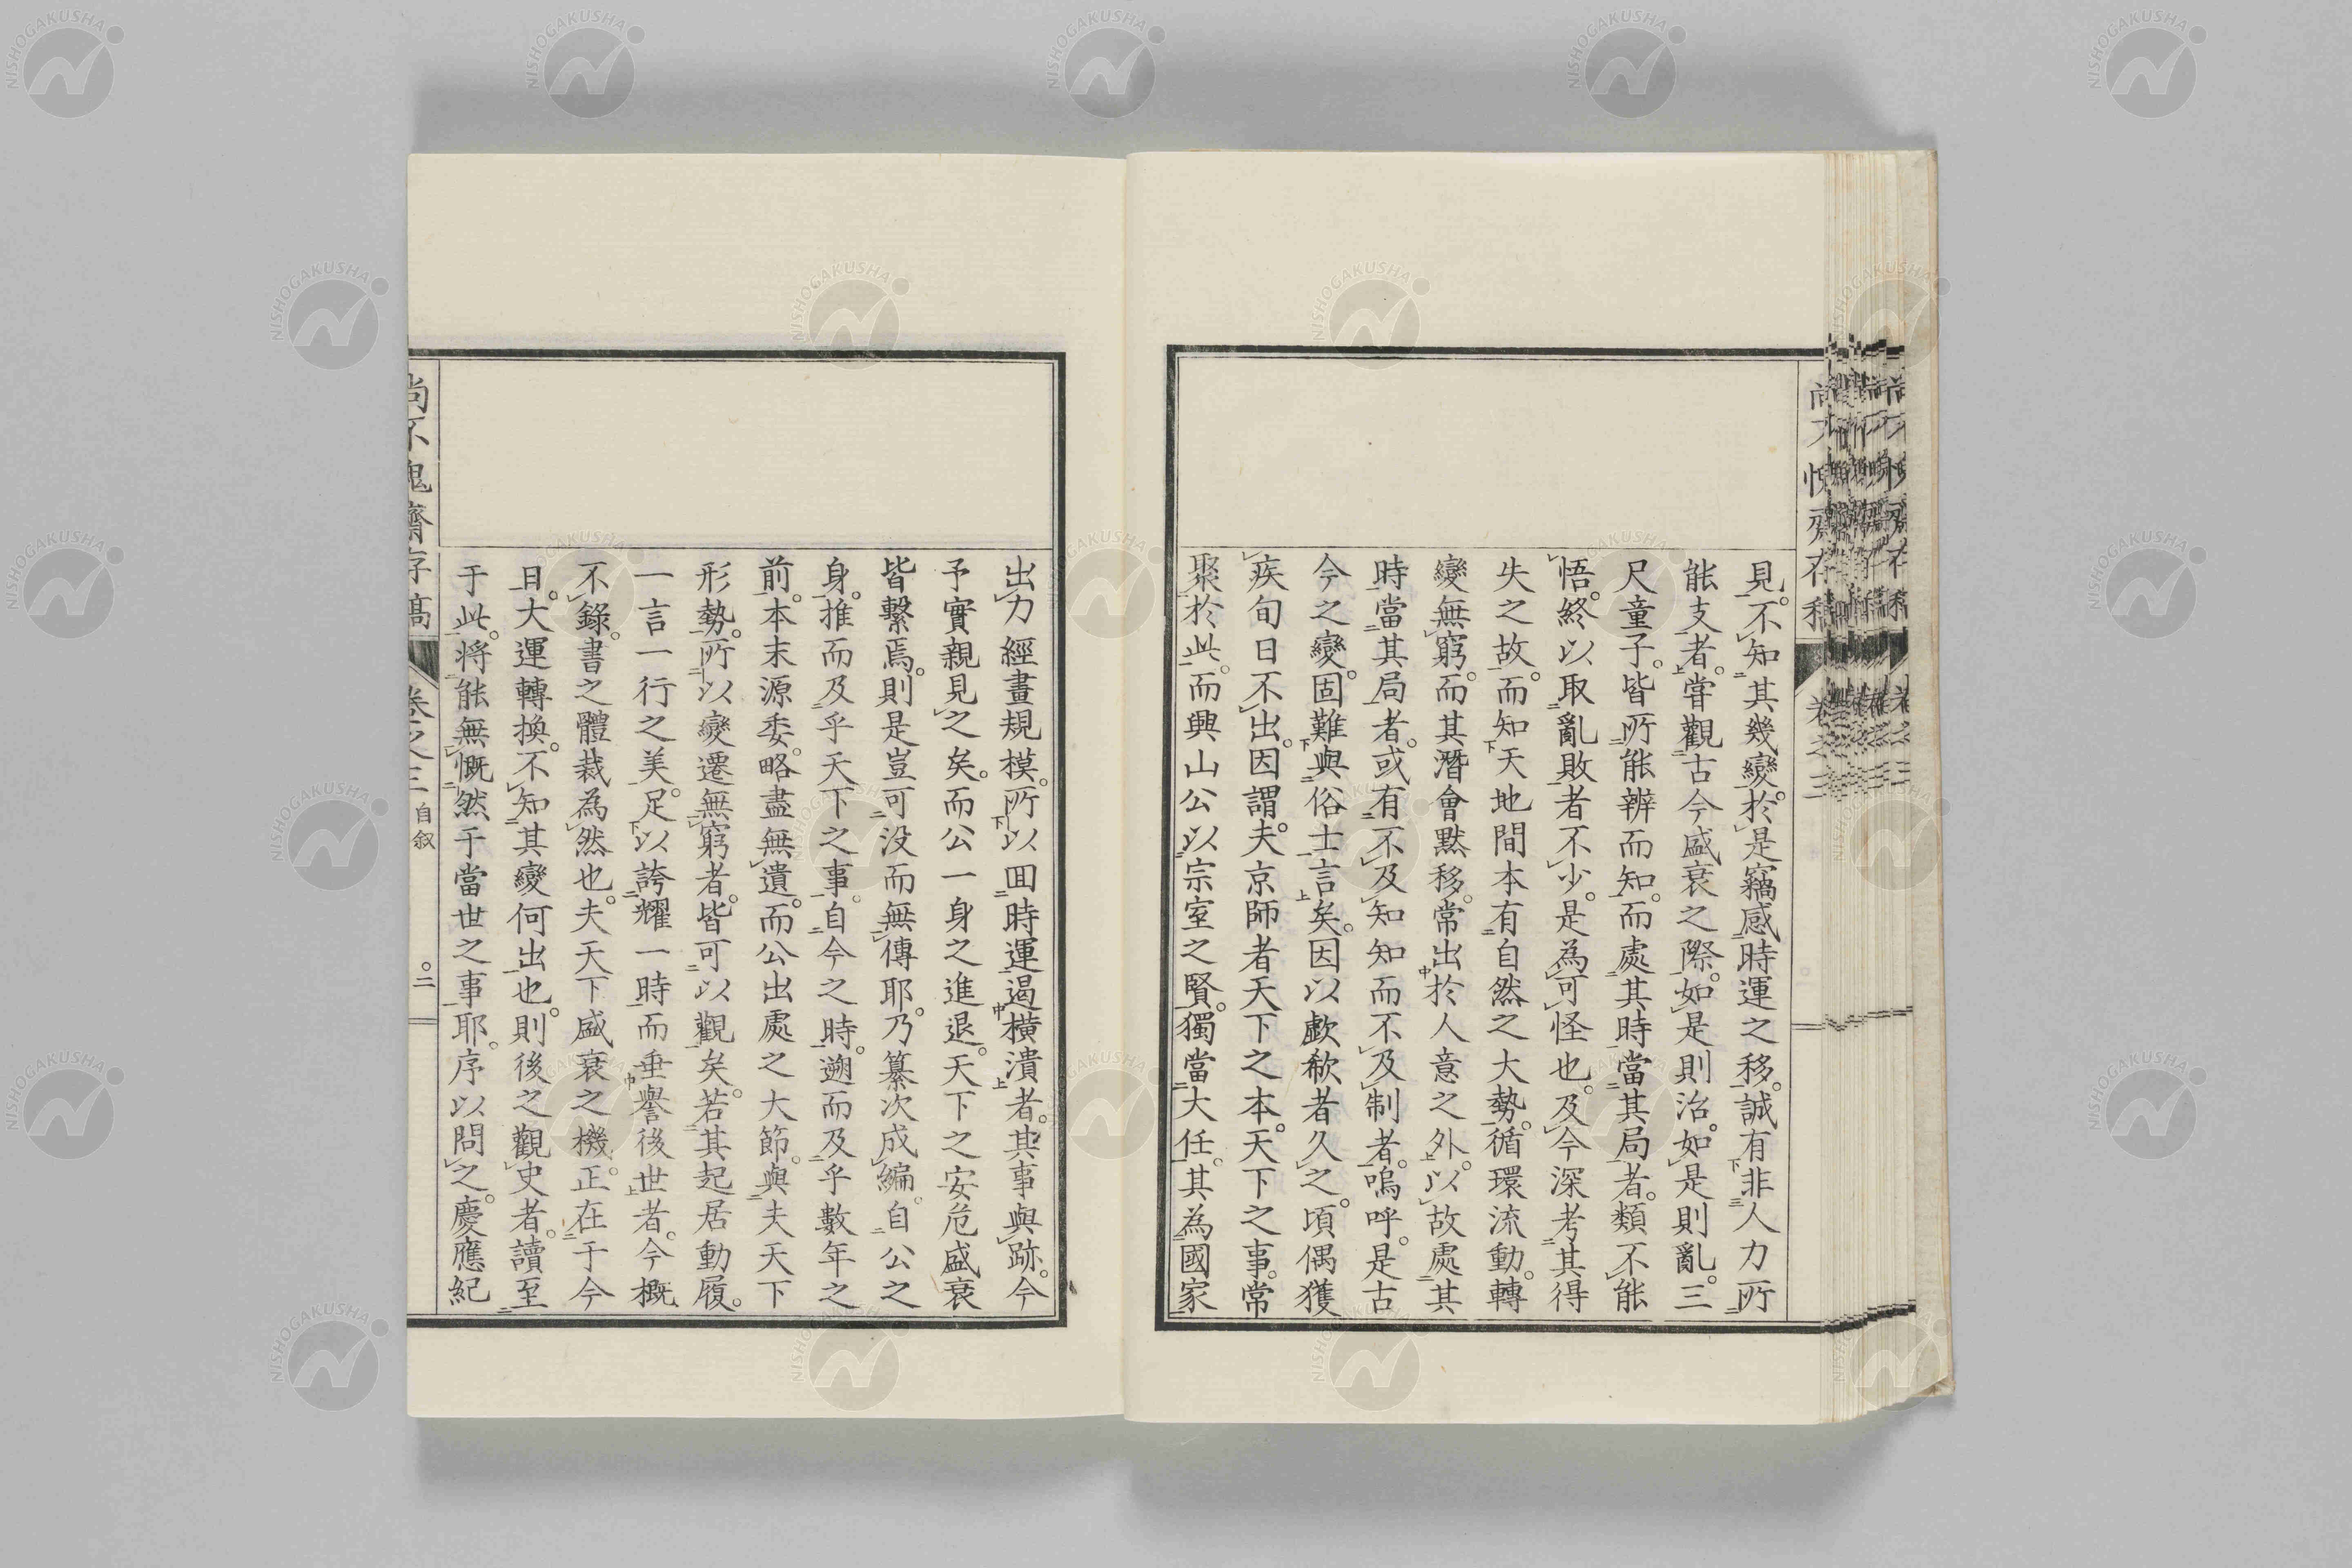 見。不知其幾變。於是竊感時運之移。誠有非人力所
能支者。甞觀古今盛衰之際。如是則治。如是則亂。三
尺童子。皆所能辨而知。而處其時當其局者。類不能
悟。終以取亂敗者不少。是為可怪也。及今深考其得
失之故。而知天地間本有自然之大勢。循環流動。轉
變無窮。而其潛會默移。常出於人意之外。以故處其
時當其局者。或有不及知知而不及制者。嗚呼。是古
今之變。固難與俗士言矣。因以歔欷者久之。頃偶獲
疾旬日不出。因謂。夫京師者天下之本。天下之事。常
聚於此。而興山公以宗室之賢。獨當大任。其為國家
出力經畫規模。所以回時運遏橫潰者。其事與跡。今
予實親見之矣。而公一身之進退。天下之安危盛衰
皆繫焉。則是豈可没而無傳耶。乃纂次成編。自公之
身。推而及乎天下之事。自今之時。遡而及乎數年之
前。本末源委。略盡無遺。而公出處之大節。與夫天下
形勢。所以變遷無窮者。皆可以觀矣。若其起居動履。
一言一行之美。足以誇耀一時。而垂譽後世者。今概
不錄。書之體裁為然也。夫天下盛衰之機。正在于今
日。大運轉換。不知其變何出也。則後之觀史者。讀至
于此。將能無慨然于當世之事耶。序以問之。慶應紀
尚不愧齋存稿
卷之三
自叙
二
NISHOGAKUSHA